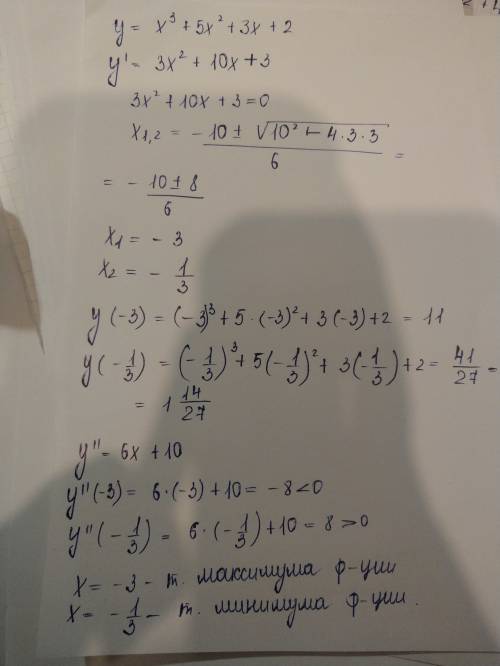 y = x³ + 5x² + 3x + 2
y' = 3x² + 10x + 3
3x² + 10x + 3 = 0
x₁,₂ = (-10 ± √(10² - 4·3·3))/6 =
= (-10 ± 8)/6
x₁ = -3
x₂ = -1/3
y(-3) = (-3)³ + 5·(-3)² + 3(-3) + 2 = 11
y(-1/3) = (-1/3)³ + 5(-1/3)² + 3(-1/3) + 2 = 41/27 =
= 1 14/27
y'' = 6x + 10
y''(-3) = 6·(-3) + 10 = -8 < 0
y''(-1/3) = 6·(-1/3) + 10 = 8 > 0
x = -3 - т. максимума ф-ции
x = -1/3 - т. минимума ф-ции.